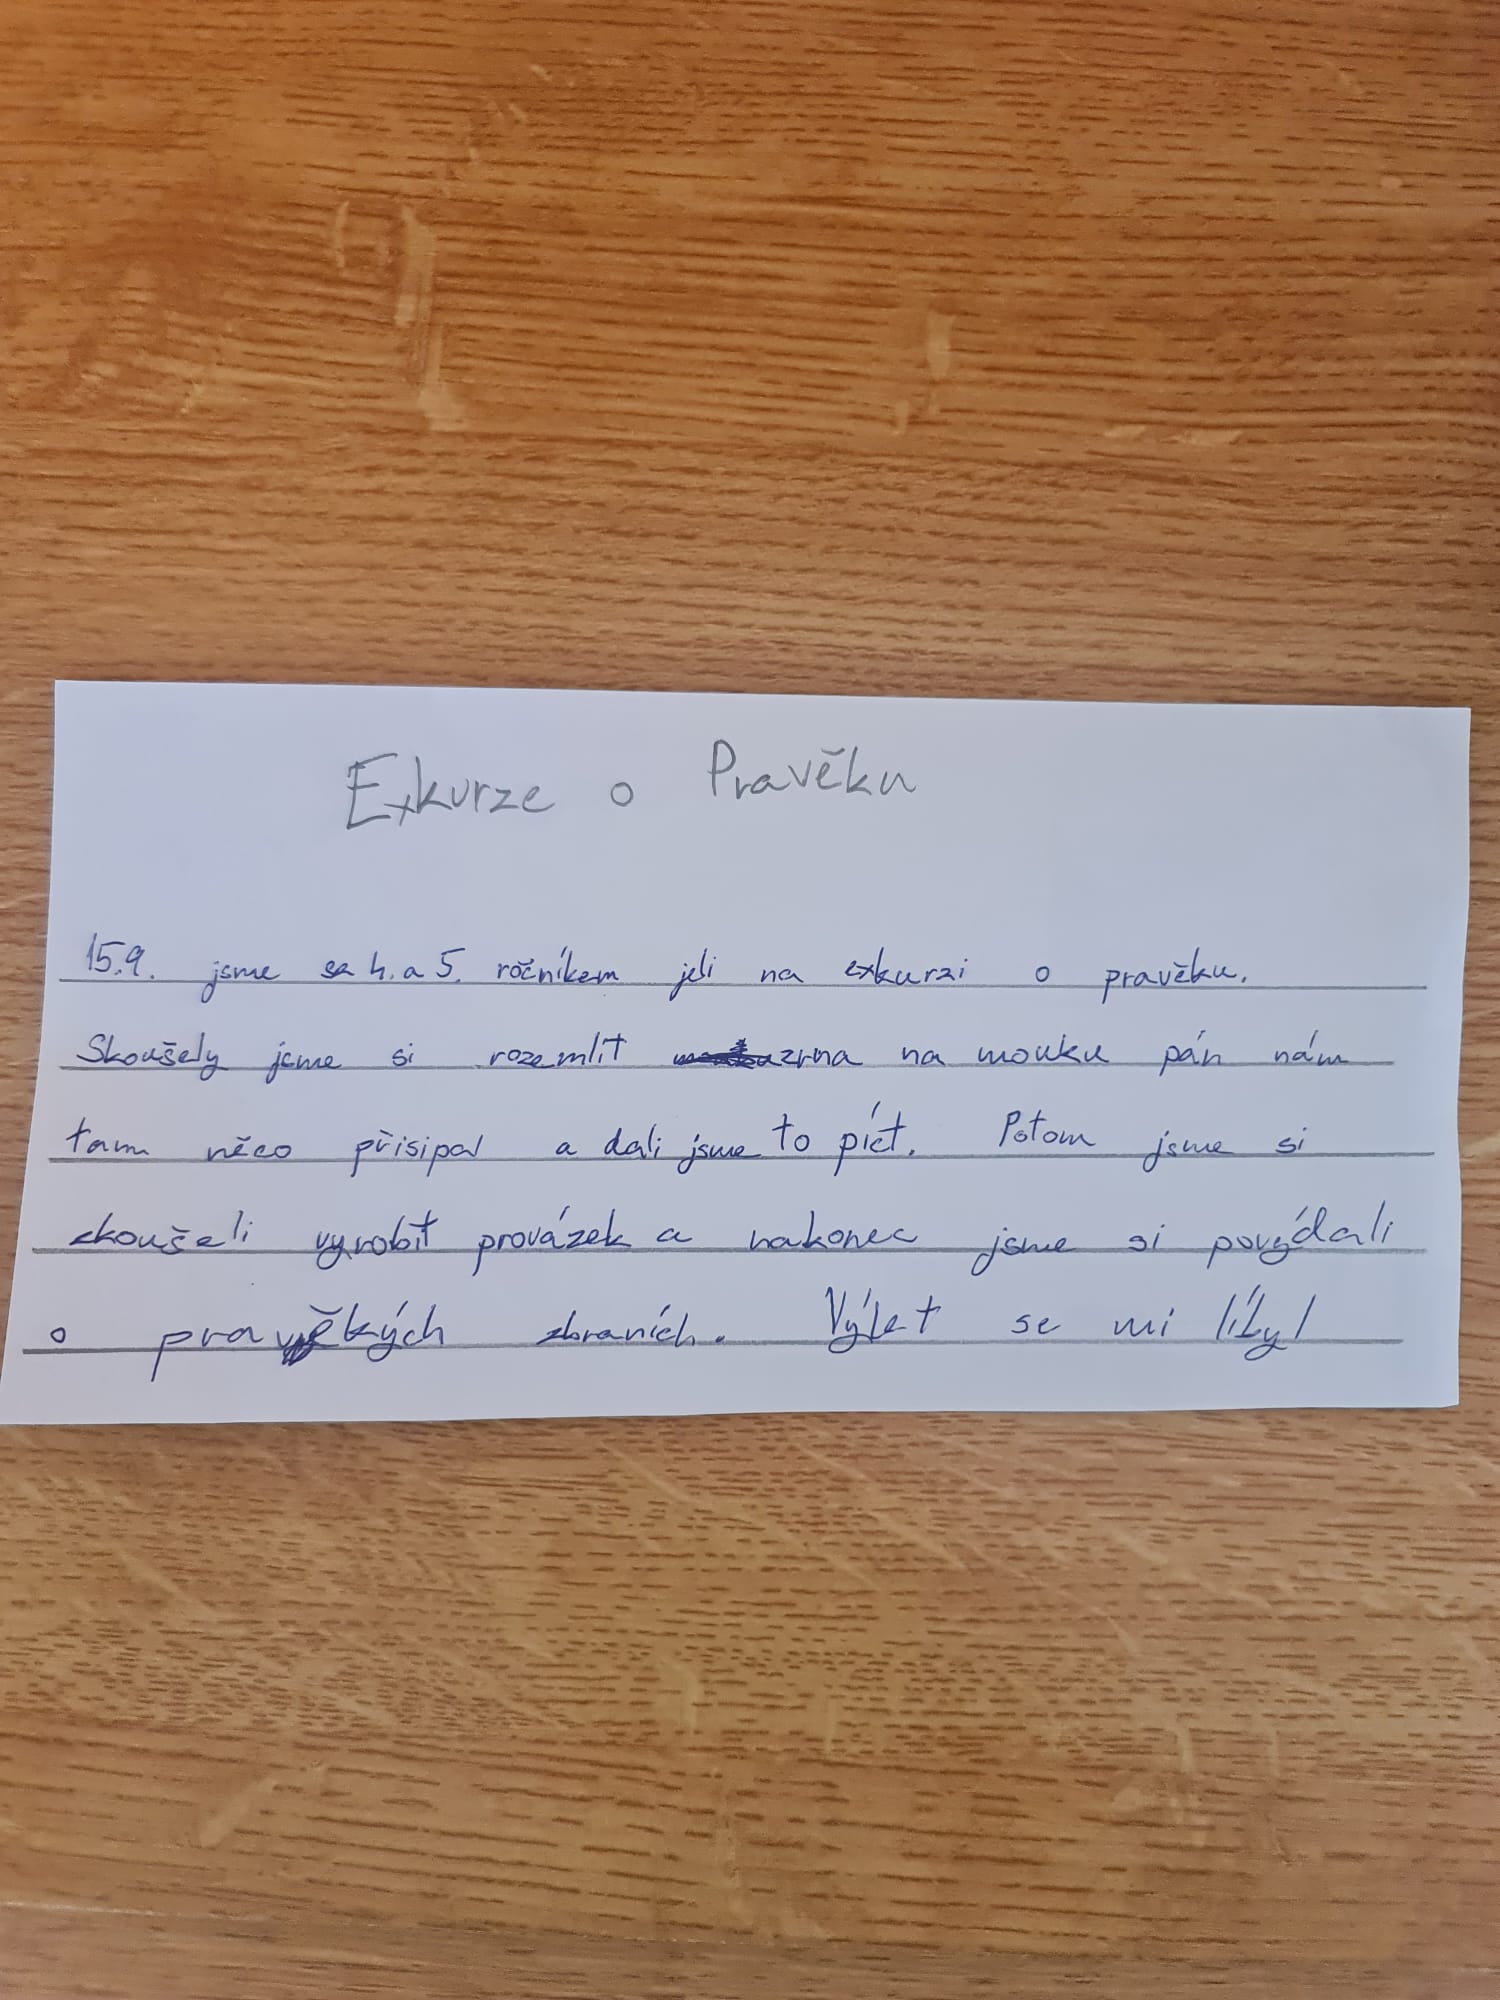 Exkurze o Pravěku
15.9. jsme se 4. a 5. ročníkem jeli na exkurzi o pravěku.
Skoušely jsme si rozemlít zrna na mouku pán nám
tam něco přisipal a dali jsme to píct. Potom jsme si
zkoušeli vyrobit provázek a nakonec jsme si povýdali
o pravěkých zbraních. Výlet se mi líbyl